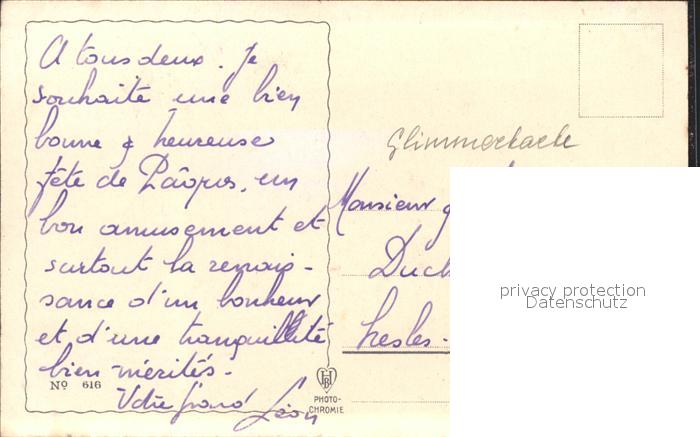 A tous deux. Je
souhaite une bien
bonne & heureuse
fête de Pâques, un
bon amusement et
surtout la renais-
sance d'un bonheur
et d'une tranquillité
bien mérités.
Votre grand Léon
Nº 616
HB
PHOTO-
CHROMIE
Glimmerkarte
Monsieur
Duch
hesles-
privacy protection
Datenschutz